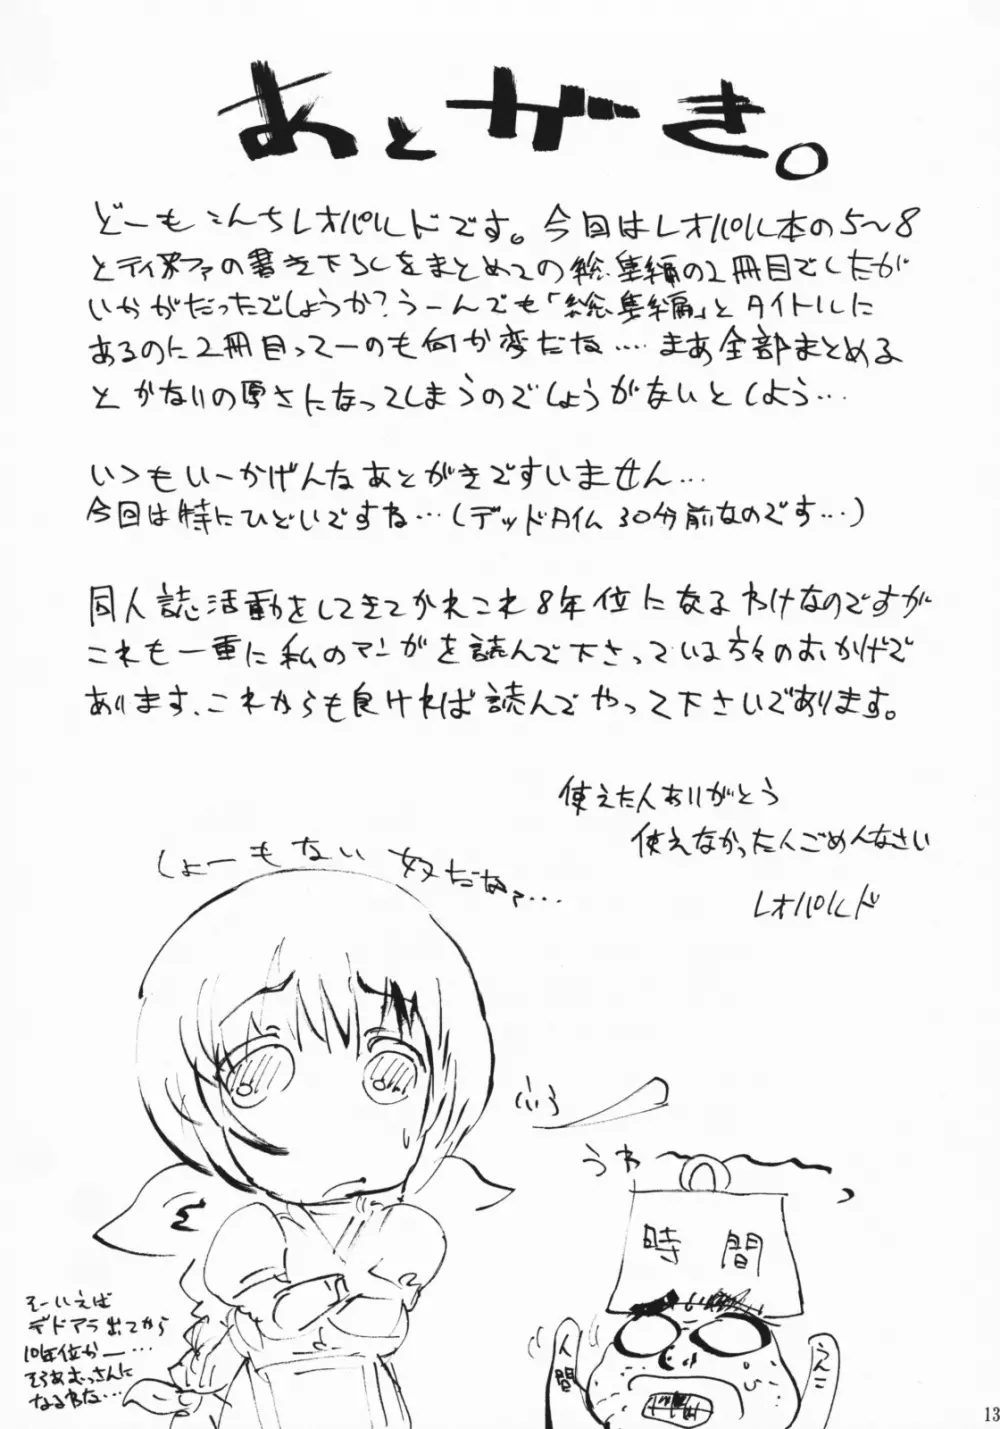 あとがき。
どーもこんちレオパルドです。今回はレオパル本の5〜8
とティファの書き下ろしをまとめての総集編の2冊目でしたが
いかがだったでしょうか?うーんでも「総集編」とタイトルに
あるのに2冊目ってーのも何か変だな‥‥まあ全部まとめる
とかないの厚さになってしまうのでしょうがないとしよう‥‥
いつもいーかげんなあとがきですいません‥‥
今回は特にひどいですね‥‥(デッドタイム30分前なのです‥‥)
同人誌活動をしてきてかれこれ8年位になるわけなのですが
これも一重に私のマンガを読んで下さっている方々のおかげで
あります、これからも良ければ読んでやって下さいであります。
使えた人ありがとう
使えなかった人ごめんなさい
レオパルド
しょーもない奴だなァ‥‥
うわ
時間
人間
そーいえば
デドアラ出てから
10年位か―‥‥
そろあむっさんに
なるわな‥‥
13